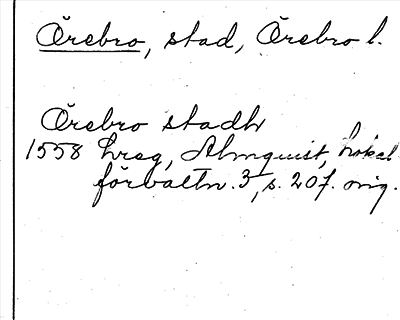 Örebro, stad, Örebro l.
Örebro stadh
1558 hreg, Almquist, Lokal
förvaltn. 3, s. 207. orig.